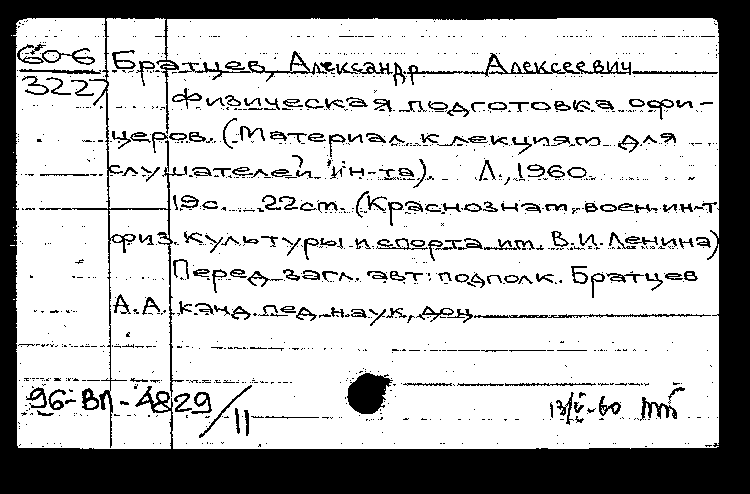 60-6 Братцев, Александр Алексеевич
3227
Физическая подготовка офи-
церов. (Материал к лекциям для
слушателей ин-та). Л., 1960.
19с. 22см. (Краснознам. воен. ин-т
физ. культуры и спорта им. В.И. Ленина)
Перед загл. авт: подполк. Братцев
А.А. канд. пед. наук, доц.
96-ВП-4829/11
13/V-60